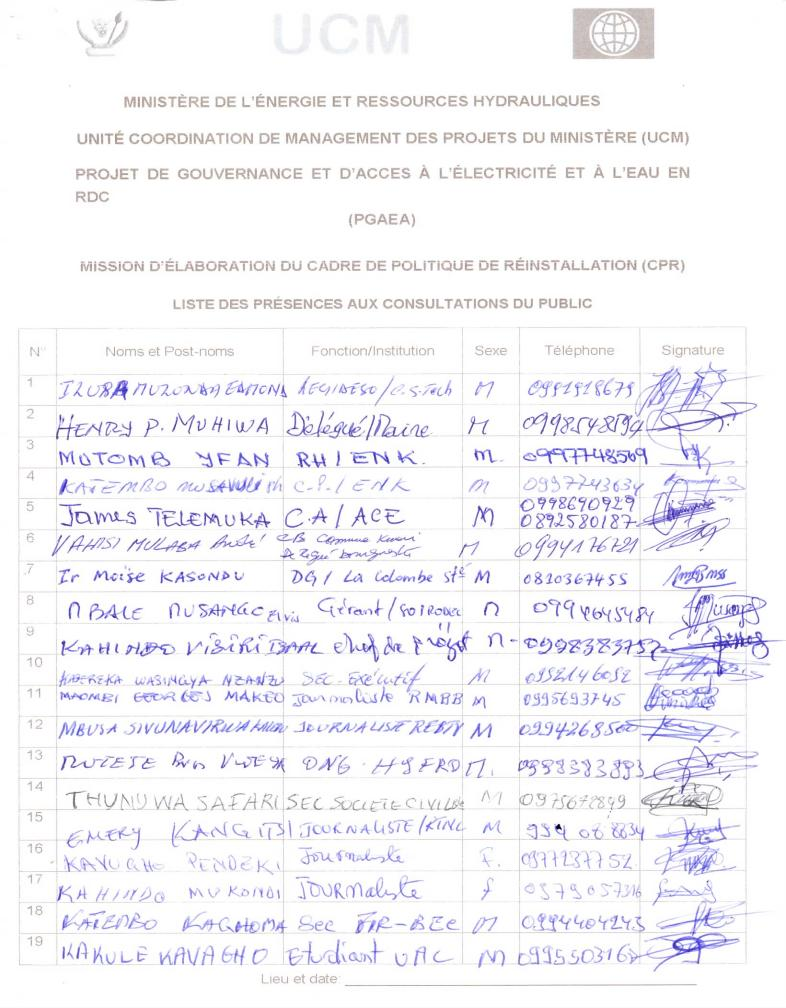 UCM
MINISTÈRE DE L'ÉNERGIE ET RESSOURCES HYDRAULIQUES
UNITÉ COORDINATION DE MANAGEMENT DES PROJETS DU MINISTÈRE (UCM)
PROJET DE GOUVERNANCE ET D'ACCES À L'ÉLECTRICITÉ ET À L'EAU EN
RDC
(PGAEA)
MISSION D'ÉLABORATION DU CADRE DE POLITIQUE DE RÉINSTALLATION (CPR)
LISTE DES PRÉSENCES AUX CONSULTATIONS DU PUBLIC
N° Noms et Post-noms Fonction/Institution Sexe Téléphone Signature
1 M 0991918679
2 HENRY P. MUHIWA Délégué/Maire M 0998548594
3 MUTOMB YFAN RH/ENK. M. 0997748569
4 KATEMBO C.P./ENK M 0997743634
5 James TELEMUKA C.A/ACE M 0998690929
0892580187
6 VAHISI MULABA André Commune M 0994176721
7 Ir Moïse KASONDU DG/ La Colombe sté M 0810367455
8 MBALE MUSANGO Elvis Gérant/ M 0994645484
9 KAHINDO chef de projet M
10 KATEREKA WASINGYA NZANZU SEC. EXÉCUTIF M 0992146052
11 MAOMBI GEORGES MAKEO Journaliste RMBB M 0995693745
12 MBUSA SIVUNAVIRWA JOURNALISTE M
13 ONG M. 0998383893
14 THUNUWA SAFARI SEC SOCIETE CIVILE M 0975678899
15 EMERY KANGITSI JOURNALISTE M
16 KAVUGHO PENDEKI Journaliste F. 0977237752
17 KAHINDO MUKONDI JOURnaliste f 0979057316
18 KATEMBO KAGHOMA Sec M 0994404243
19 KAKULE KAVAGHO Etudiant UAC M
Lieu et date: